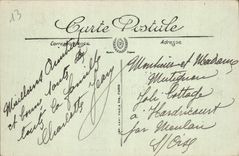 13
Carte Postale
Correspondance
Adresse
Meilleurs
et bons
toute la famille
Charlotte Jean
Monsieur et Madame
Joli Cottage
à Hardricourt
par Meulan
S/Oise